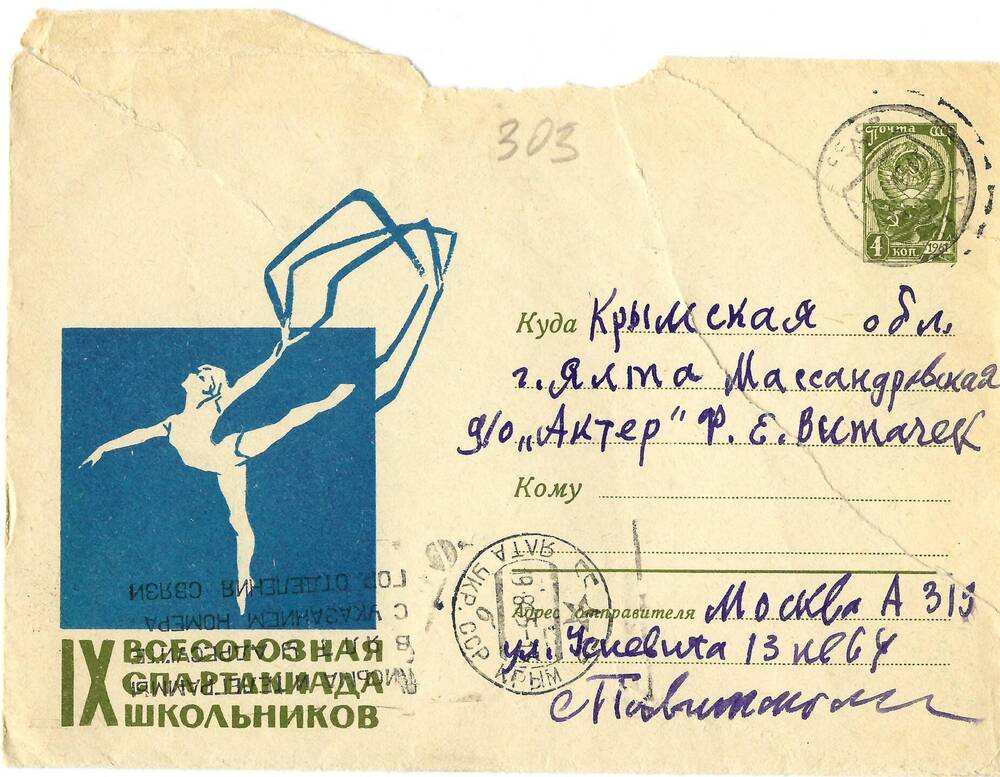 303
Почта СССР
4 коп 1961
Куда Крымская обл.
г. Ялта Массандровская
д/о „Актер" Ф. Е. Витачек
Кому
Адрес отправителя Москва А 315
ул. Усиевича 13 кв 64
ЯЛТА
УКР. ССР КРЫМ
6
ПИСЬМА И ТЕЛЕГРАММЫ
В ЯЛТУ АДРЕСУЙТЕ
С УКАЗАНИЕМ НОМЕРА
ГОР. ОТДЕЛЕНИЯ СВЯЗИ
IX ВСЕСОЮЗНАЯ
СПАРТАКИАДА
ШКОЛЬНИКОВ